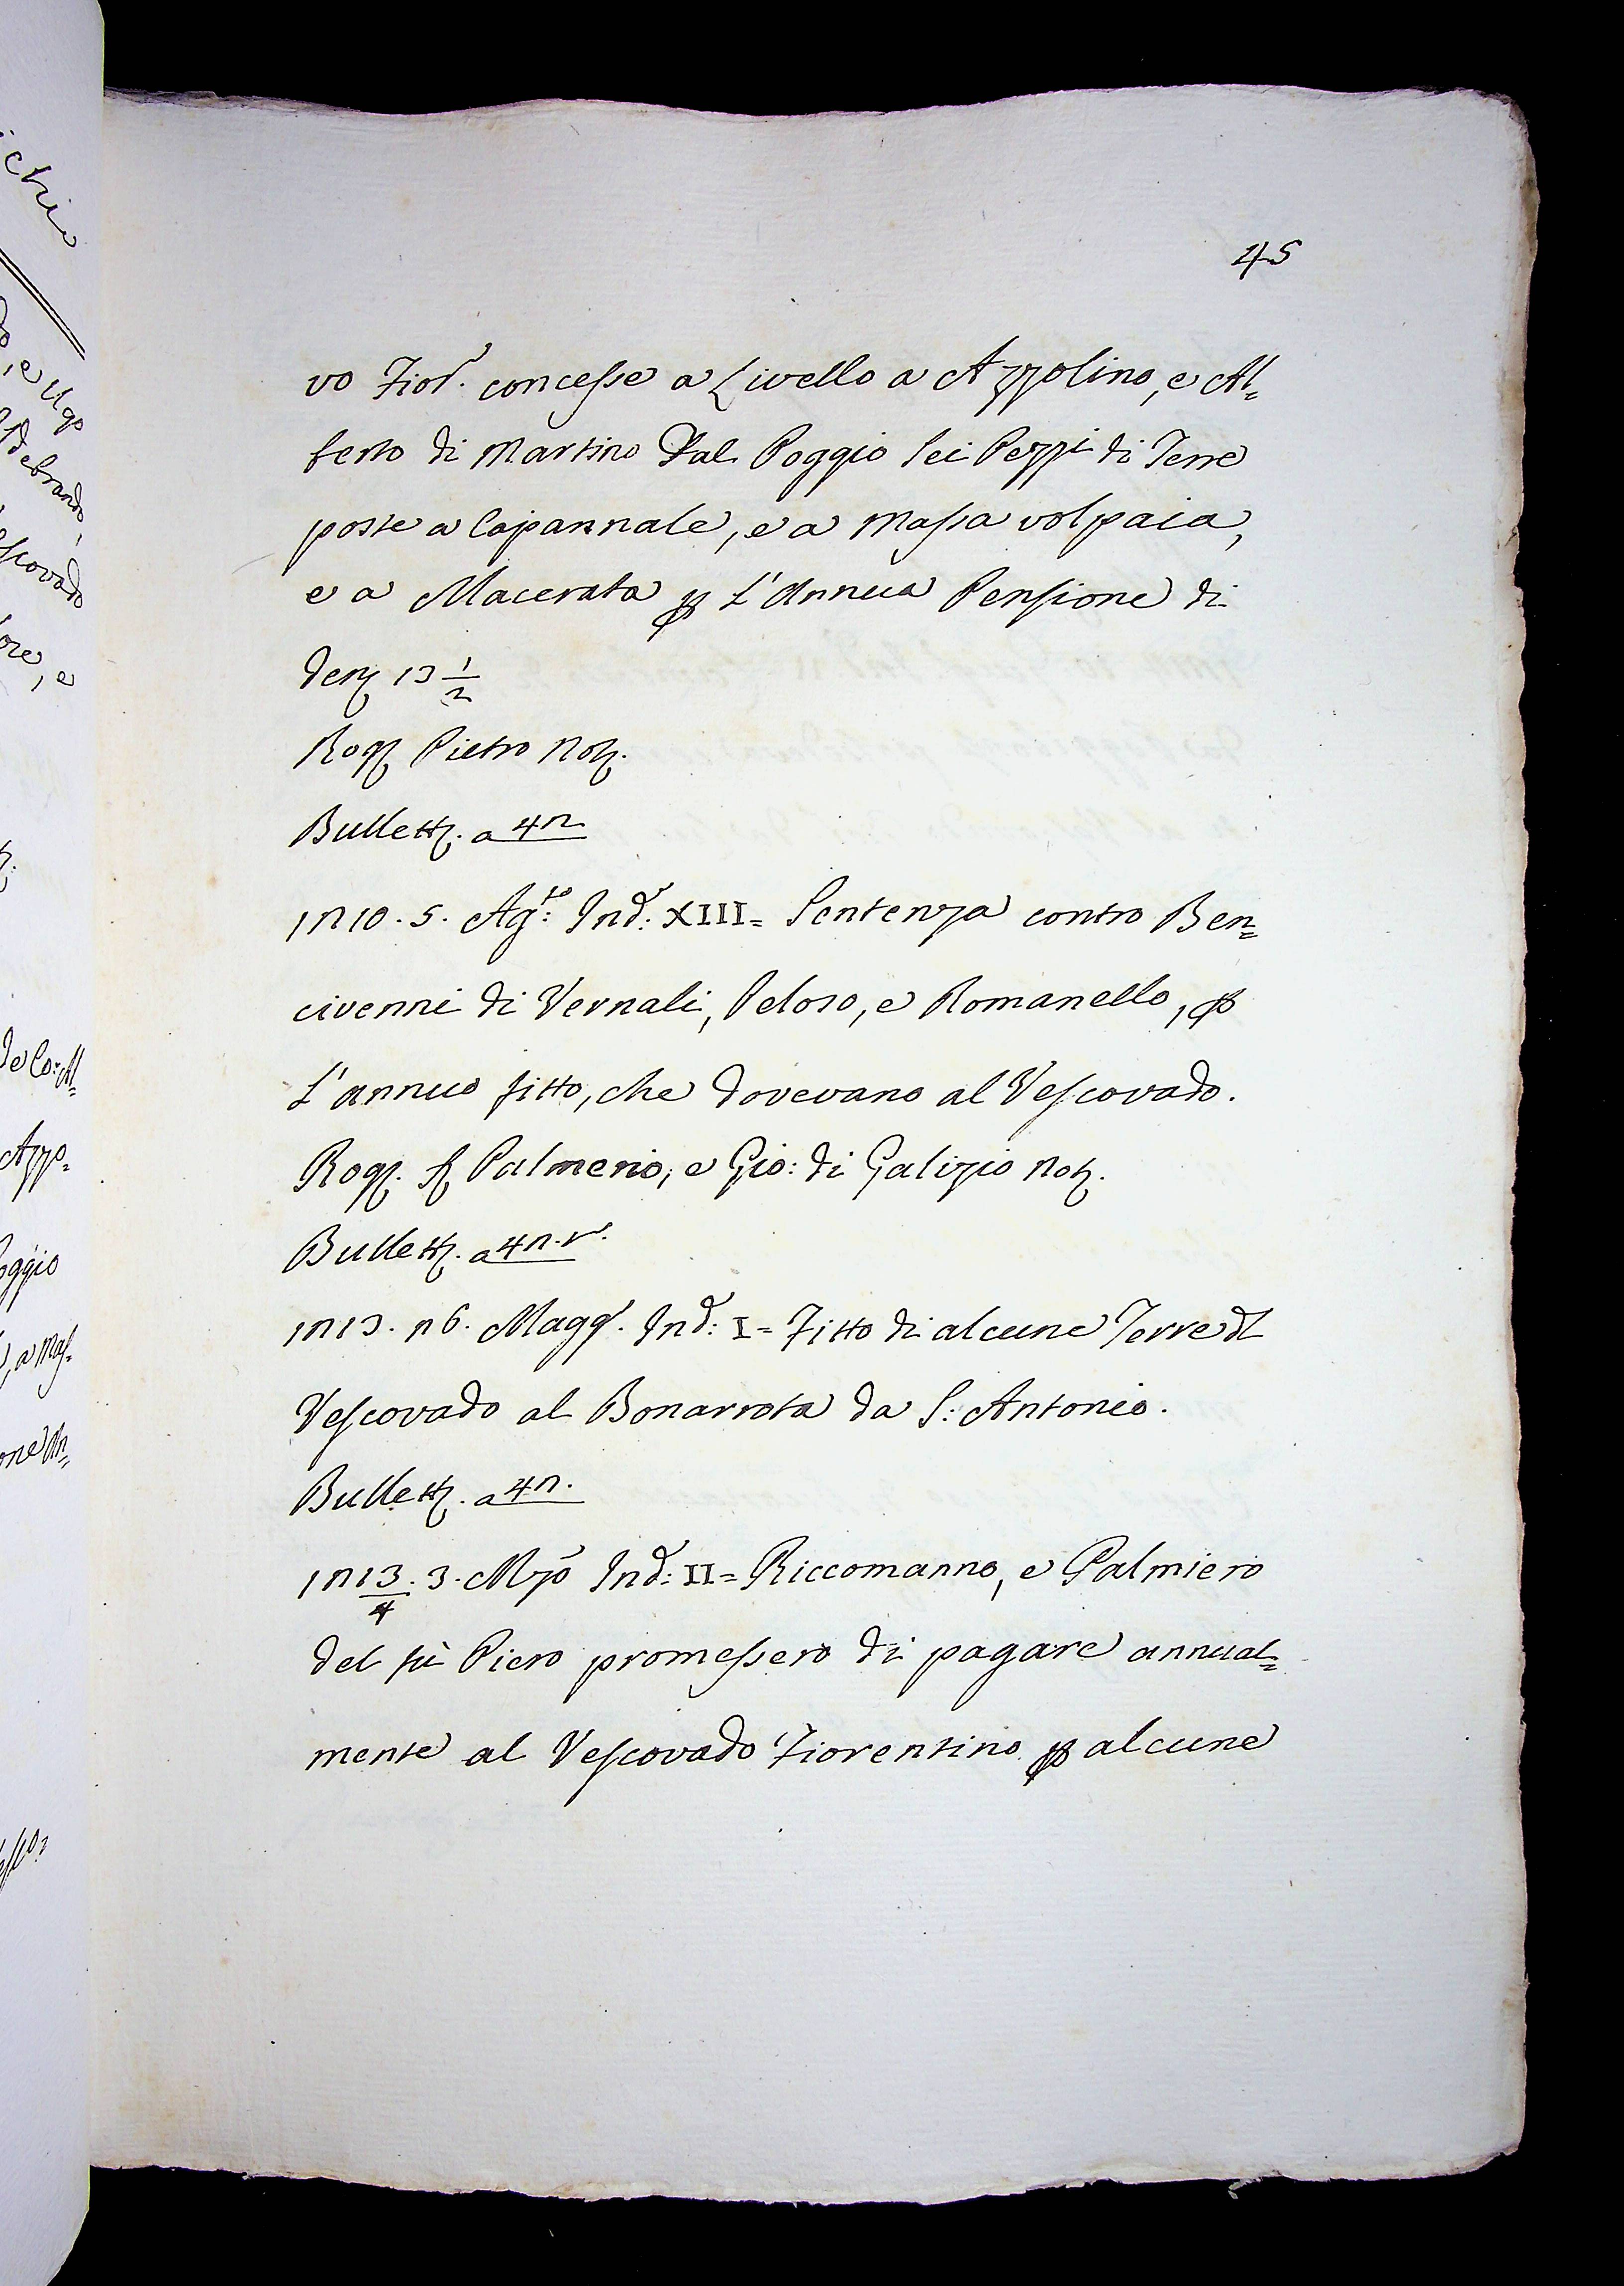 45
vo Fior.^o concesse a Livello a Azzolino, e Al=
berto di Martino Dal Poggio Sei Pezzi di Terre
poste a Capannale, e a Massa volpaia,
e a Macerata p L'Annua Pensione di
den 13 1/2
Rog Pietro Not.
Bullett. a 42
1210. 5. Ag.to: Ind: XIII= Sentenza contro Ben=
civenni di Vernali, Peloso, e Romanello, p
L'annuo fitto, che dovevano al Vescovado.
Rog. Palmerio, e Gio: di Galizio Not.
Bullett. a 42. v.
1213. 26. Magg. Ind: I= Fitto di alcune Terre dl
Vescovado al Bonarrota da S: Antonio.
Bullett. a 42.
1213/4. 3. Mzo Ind: II= Riccomanno, e Palmiero
del fù Piero promessero di pagare annual=
mente al Vescovado Fiorentino p alcune